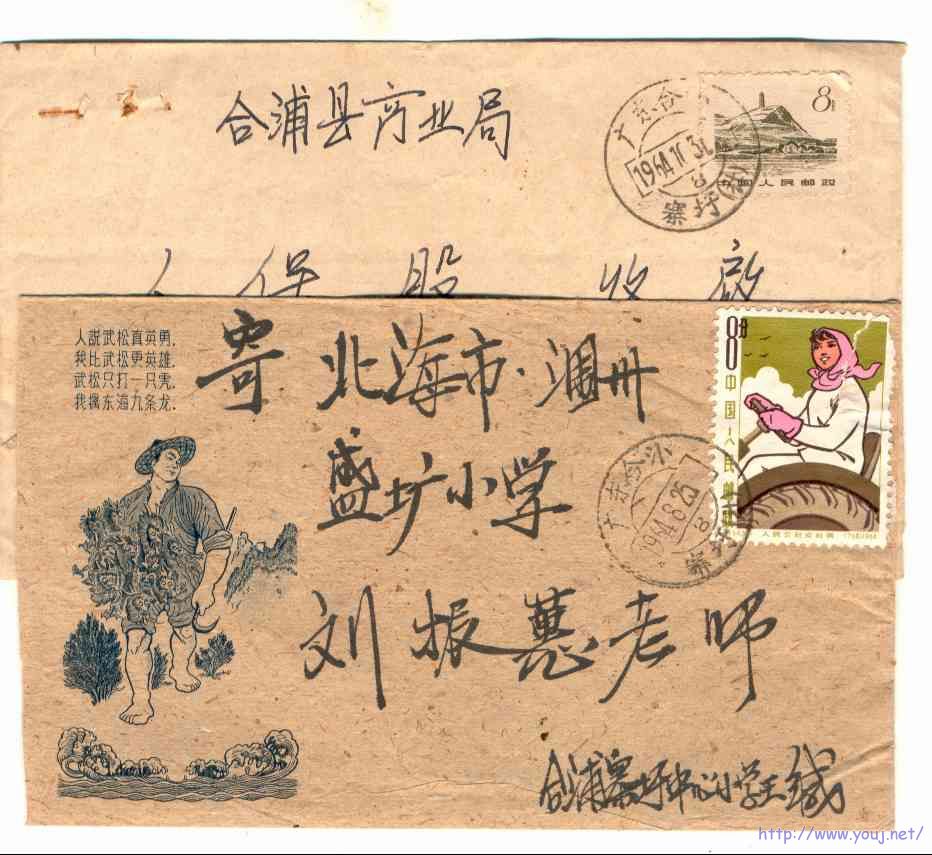 合浦县商业局
8分
中国人民邮政
广东合浦
1964.10.31
8
寨圩(社)
人保股 收启
人説武松真英勇.
我比武松更英雄.
武松只打一只虎.
我擒东海九条龙.
寄 北海市·涠州
盛圹小学
刘振蕙老师
8分
中国人民邮政
广东合浦
1964.8.25
8
寨圩
合浦寨圩中心小学王
http://www.youj.net/